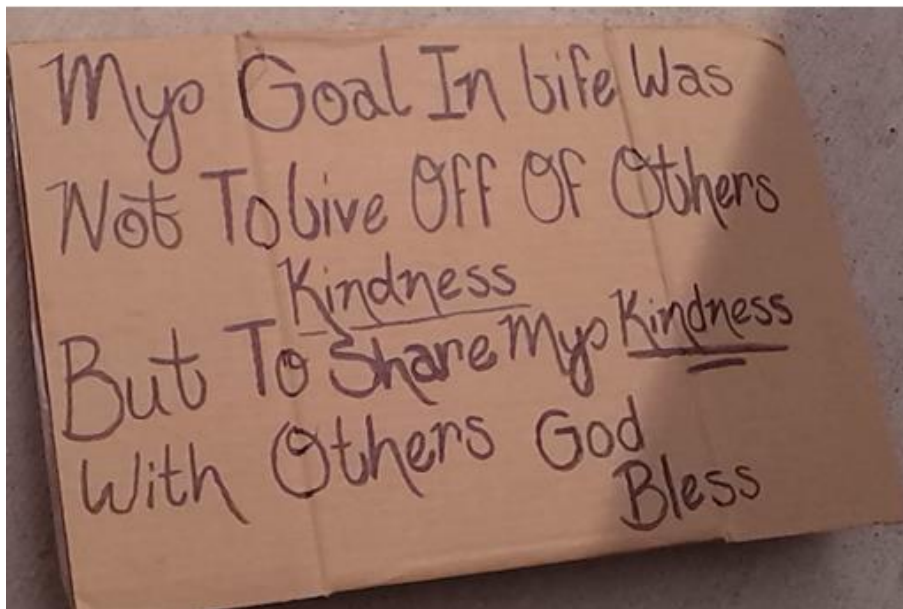 My Goal In Life Was
Not To Live Off Of Others
Kindness
But To Share My Kindness
With Others God
Bless